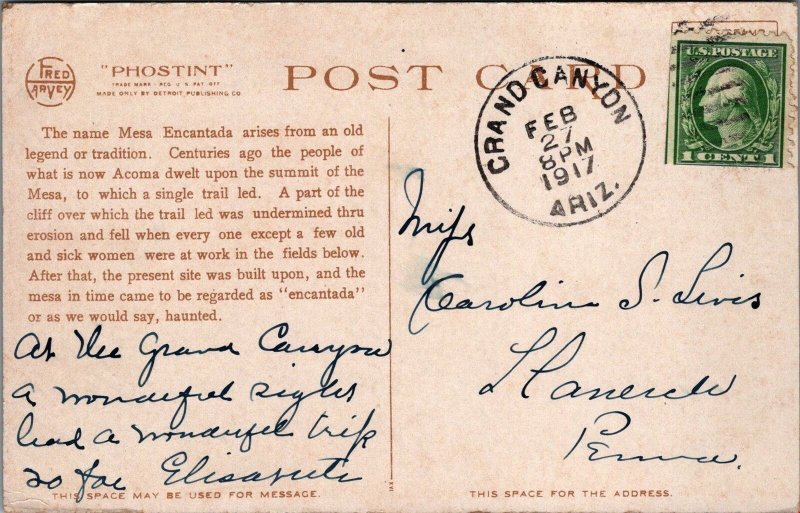 FRED
HARVEY
"PHOSTINT"
TRADE MARK - REG. U.S. PAT. OFF.
MADE ONLY BY DETROIT PUBLISHING CO
POST CARD
The name Mesa Encantada arises from an old
legend or tradition. Centuries ago the people of
what is now Acoma dwelt upon the summit of the
Mesa, to which a single trail led. A part of the
cliff over which the trail led was undermined thru
erosion and fell when every one except a few old
and sick women were at work in the fields below.
After that, the present site was built upon, and the
mesa in time came to be regarded as "encantada"
or as we would say, haunted.
At the Grand Canyon
a wonderful sight
had a wonderful trip
so far
THIS SPACE MAY BE USED FOR MESSAGE.
GRAND CANYON
FEB
27
8 PM
1917
ARIZ.
U.S. POSTAGE
1 CENT 1
Miss
Caroline S.
Llanerch
Penna.
THIS SPACE FOR THE ADDRESS.